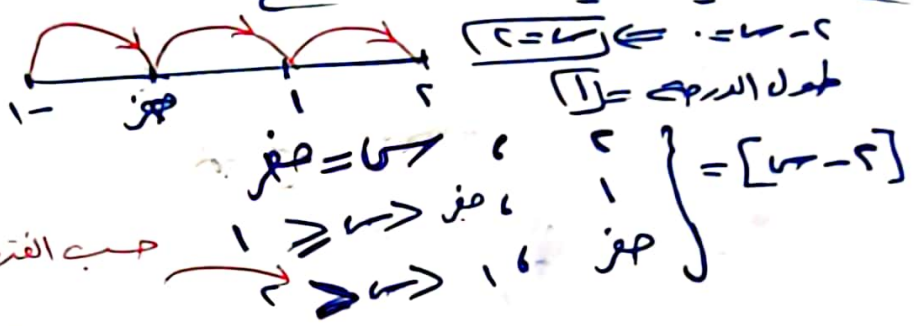 ٢ - س = ٠ ⇐ س = ٢
طول الدرجة = ١
-١ صفر ١ ٢
[٢ - س] = {
٢ ، س = صفر
١ ، صفر < س ≤ ١
صفر ، ١ < س ≤ ٢
حسب